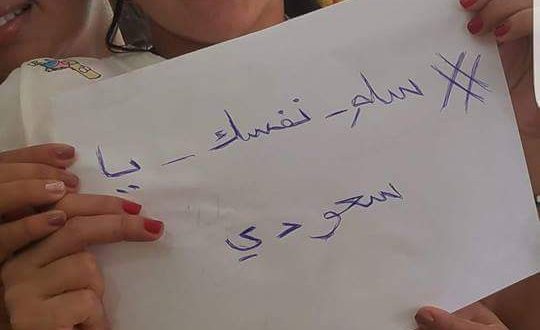 #سلم_نفسك_يا
سعودي